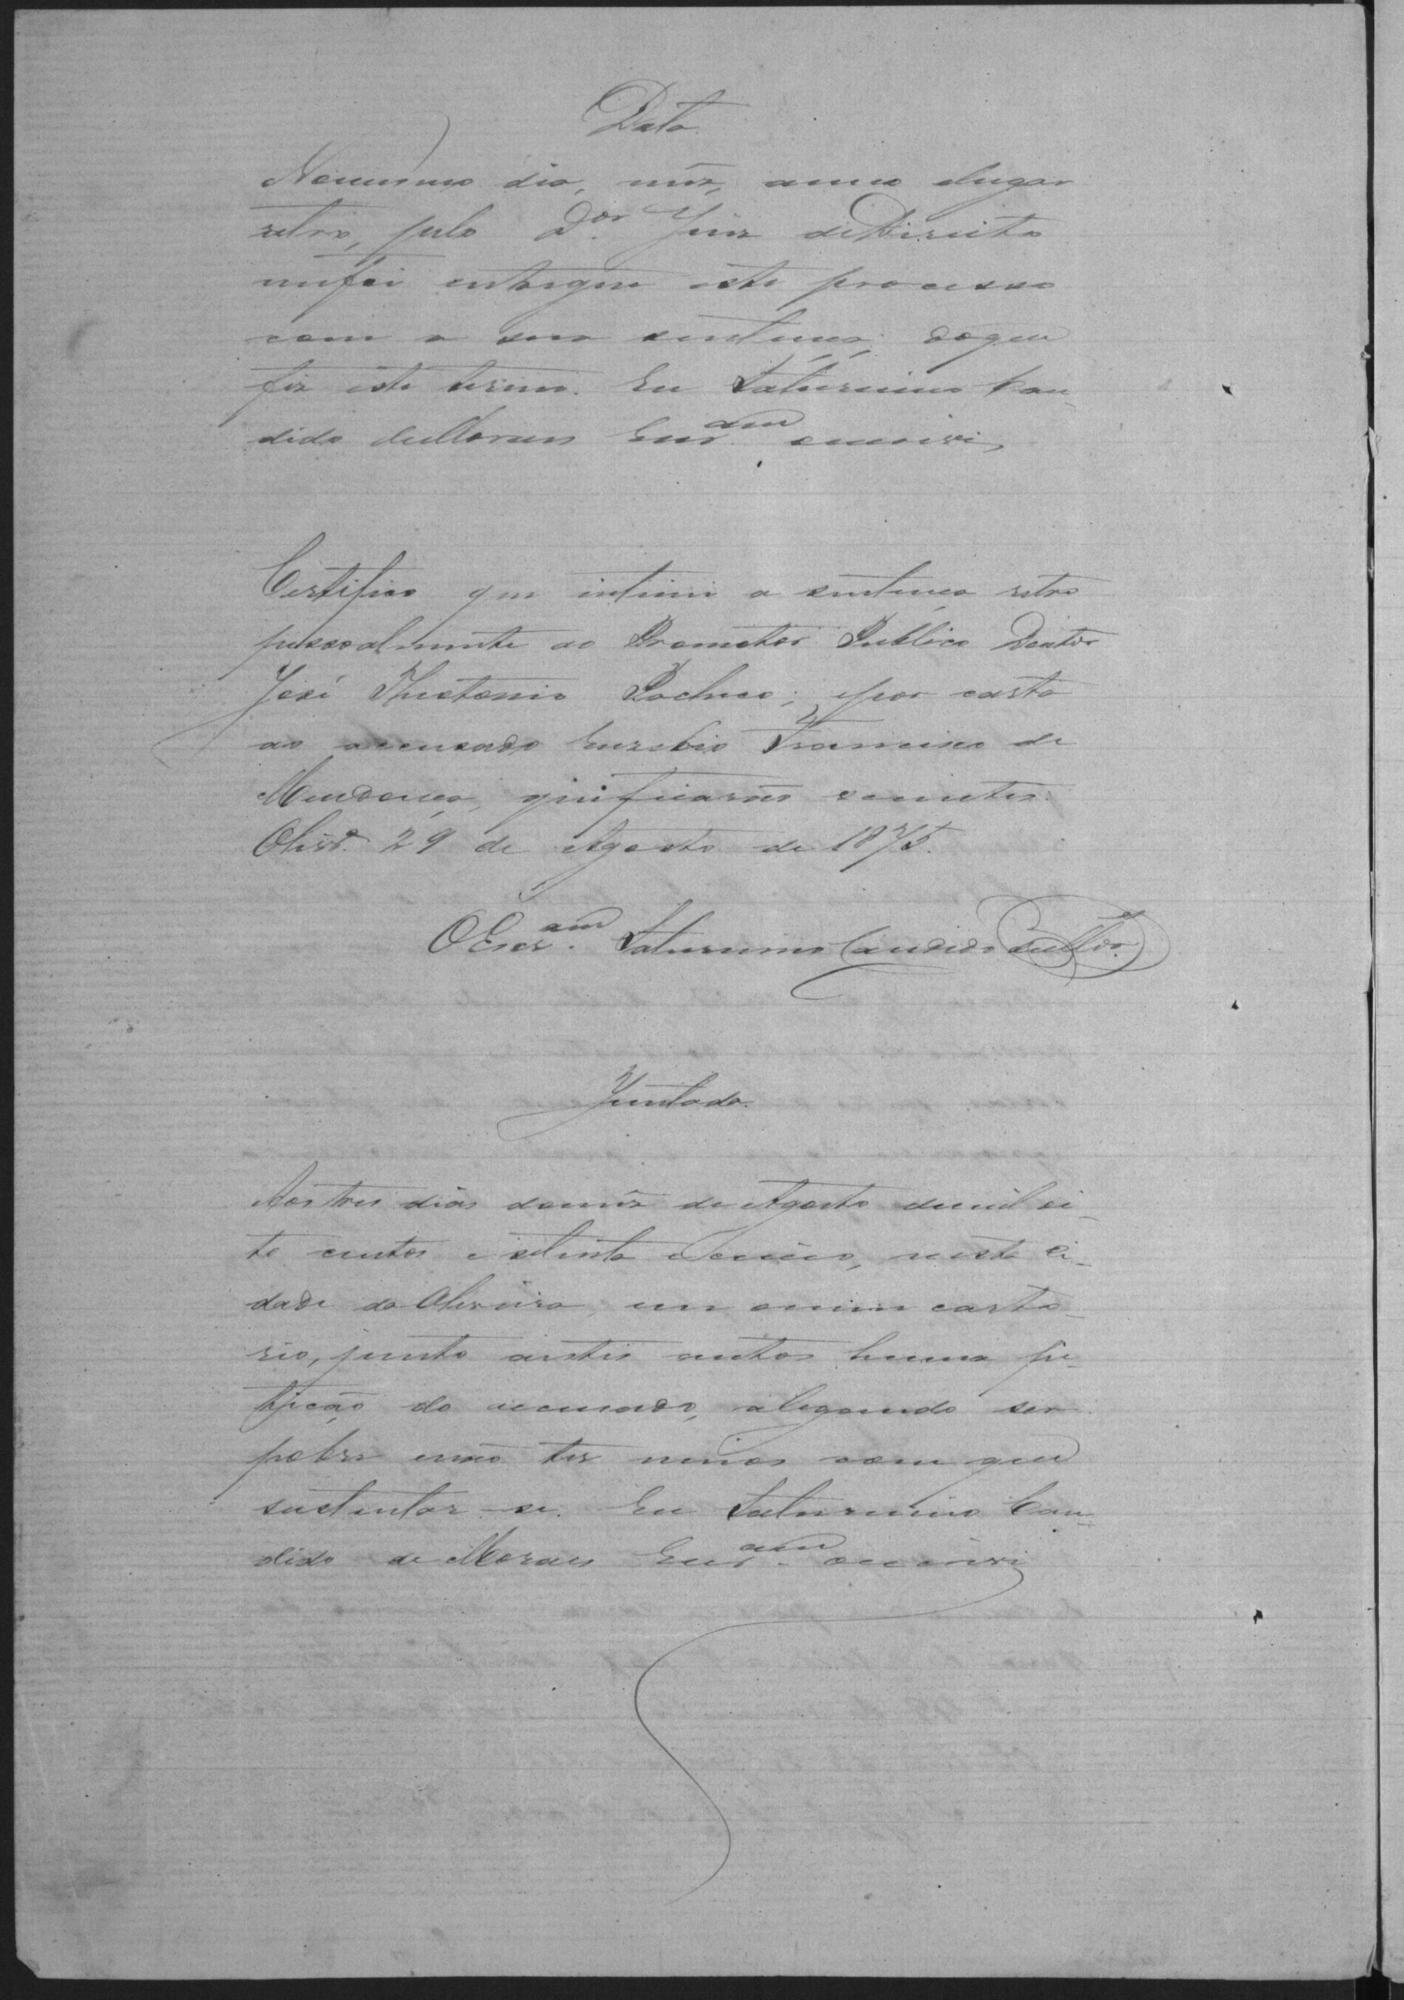 Data
No mesmo dia, mez, anno elugar
retro, pelo D.or Juiz deDireito
mefoi entregue este processo
com a sua sentença; doque
fiz este termo. Eu Saturnino Can-
dido deMoraes Escr.am escrivi,
Certifico que intimei a sentença retro
pessoalmente ao Promotor Publico Doutor
José Theotonio Pacheco; epor carta
ao accusado Euzebio Francisco de
Mendonça, queficarão scientes.
Olivr.a 29 de Agosto de 1875.
O Escr.am Saturnino Candido deMor.
Juntada.
Aos tres dias domez de Agosto demil oi-
to centos esetenta ecinco, nesta ci-
dade da Oliveira, em omeu carto-
rio, junto aestes autos huma pe-
tição do accusado, alegando ser
pobre enão ter meios com que
sustentar-se. Eu Saturnino Can-
dido de Moraes Escr.am oescrivi